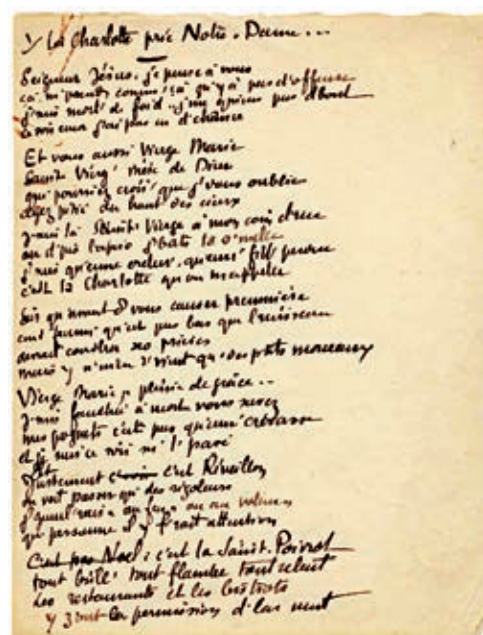 La Charlotte prie Notre-Dame...
Seigneur Jésus, je pense à vous
ça m'prend comm' ça qu'y a pas d'offense
j'suis mort' de foid j'me quiens pus d'bout
c'soir encor j'ai pas eu d'chance
Et vous aussi Vierge Marie
Sainte Vierg' Mère de Dieu
qui pourriez croir' que j'vous oublie
ayez pitié du haut des cieux
J'suis là Sainte Vierge à mon coin d'rue
où d'pis l'apéro j'bats la s'melle
j'suis qu'eune ordur', qu'eun' fill' perdue
c'est la Charlotte qu'on m'appelle
qu'avant d'vous causer preummière
pus bas que l'ruisseau
devrait conaître ses prières
mais y n'm'en r'vient qu'des p'tits morceaux
Vierge Marie, pleine de grâce..
j'suis fauchée à mort vous savez
mes pognets c'est pus qu'eun' crevasse
et
Justement c'est Réveillon
on voit passer qu'des rigoleurs
j'gueul'rais « au feu » ou aux voleurs
qu'personne il y f'rait attention
C'est pas Noël: c'est la Saint-Poivrot
tout brille tout flambe tout reluit
Les restaurants et les bistrots
y z'ont la permission d'la nuit